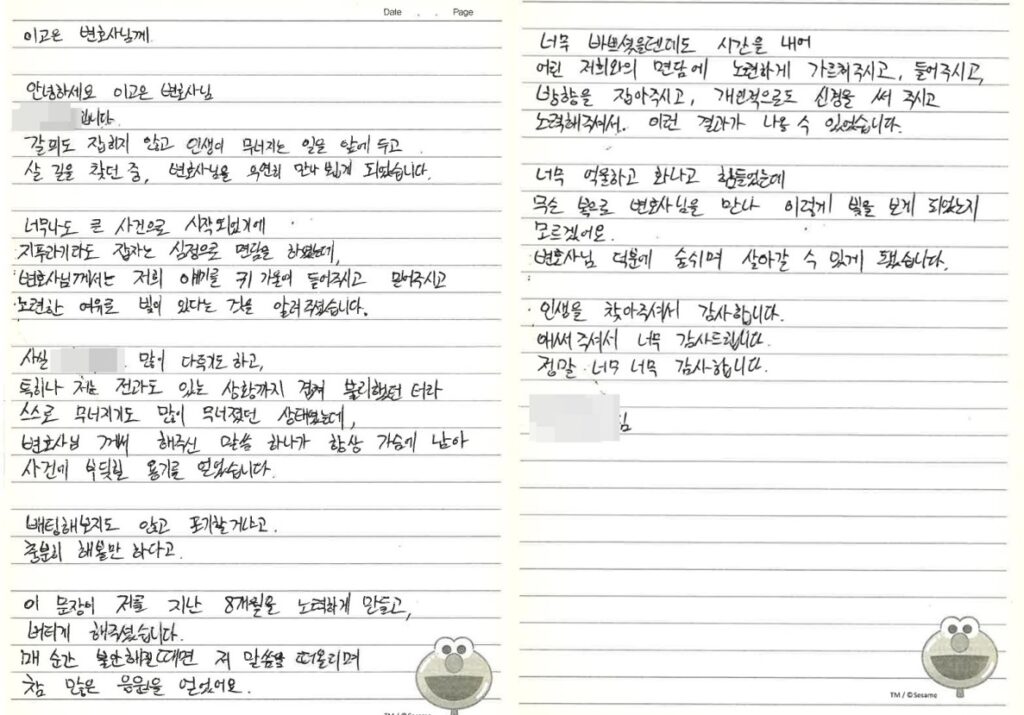 Date . . Page
이고은 변호사님께.
안녕하세요 이고은 변호사님
입니다.
갈피도 잡히지 않고 인생이 무너지는 일을 앞에 두고
살 길을 찾던 중, 변호사님을 우연히 만나 뵙게 되었습니다.
너무나도 큰 사건으로 시작되었기에
지푸라기라도 잡자는 심정으로 면담을 하였는데,
변호사님께서는 저희 얘기를 귀 기울여 들어주시고 믿어주시고
노련한 여유로 빛이 있다는 것을 알려주셨습니다.
사실 많이 다투기도 하고,
특히나 저는 전과도 있는 상황까지 겹쳐 불리했던 터라
스스로 무너지기도 많이 무너졌던 상태였는데,
변호사님 께서 해주신 말씀 하나가 항상 가슴에 남아
사건에 부딪힐 용기를 얻었습니다.
배팅해보지도 않고 포기할거냐고.
충분히 해볼만 하다고.
이 문장이 저를 지난 8개월을 노력하게 만들고,
버티게 해주셨습니다.
매 순간 불안해질때면 저 말씀을 떠올리며
참 많은 응원을 얻었어요.
TM / ©Sesame
너무 바쁘셨을텐데도 시간을 내어
어린 저희와의 면담에 노련하게 가르쳐주시고, 들어주시고,
방향을 잡아주시고, 개인적으로도 신경을 써 주시고
노력해주셔서. 이런 결과가 나올 수 있었습니다.
너무 억울하고 화나고 힘들었는데
무슨 복으로 변호사님을 만나 이렇게 빛을 보게 되었는지
모르겠어요.
변호사님 덕분에 숨쉬며 살아갈 수 있게 됐습니다.
인생을 찾아주셔서 감사합니다.
애써주셔서 너무 감사드립니다.
정말 너무 너무 감사합니다.
TM / ©Sesame